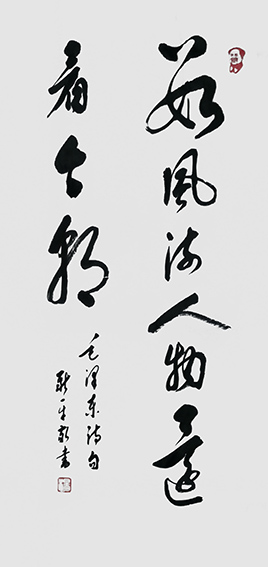 数风流人物还
看今朝
毛泽东诗句
耿玉敏书